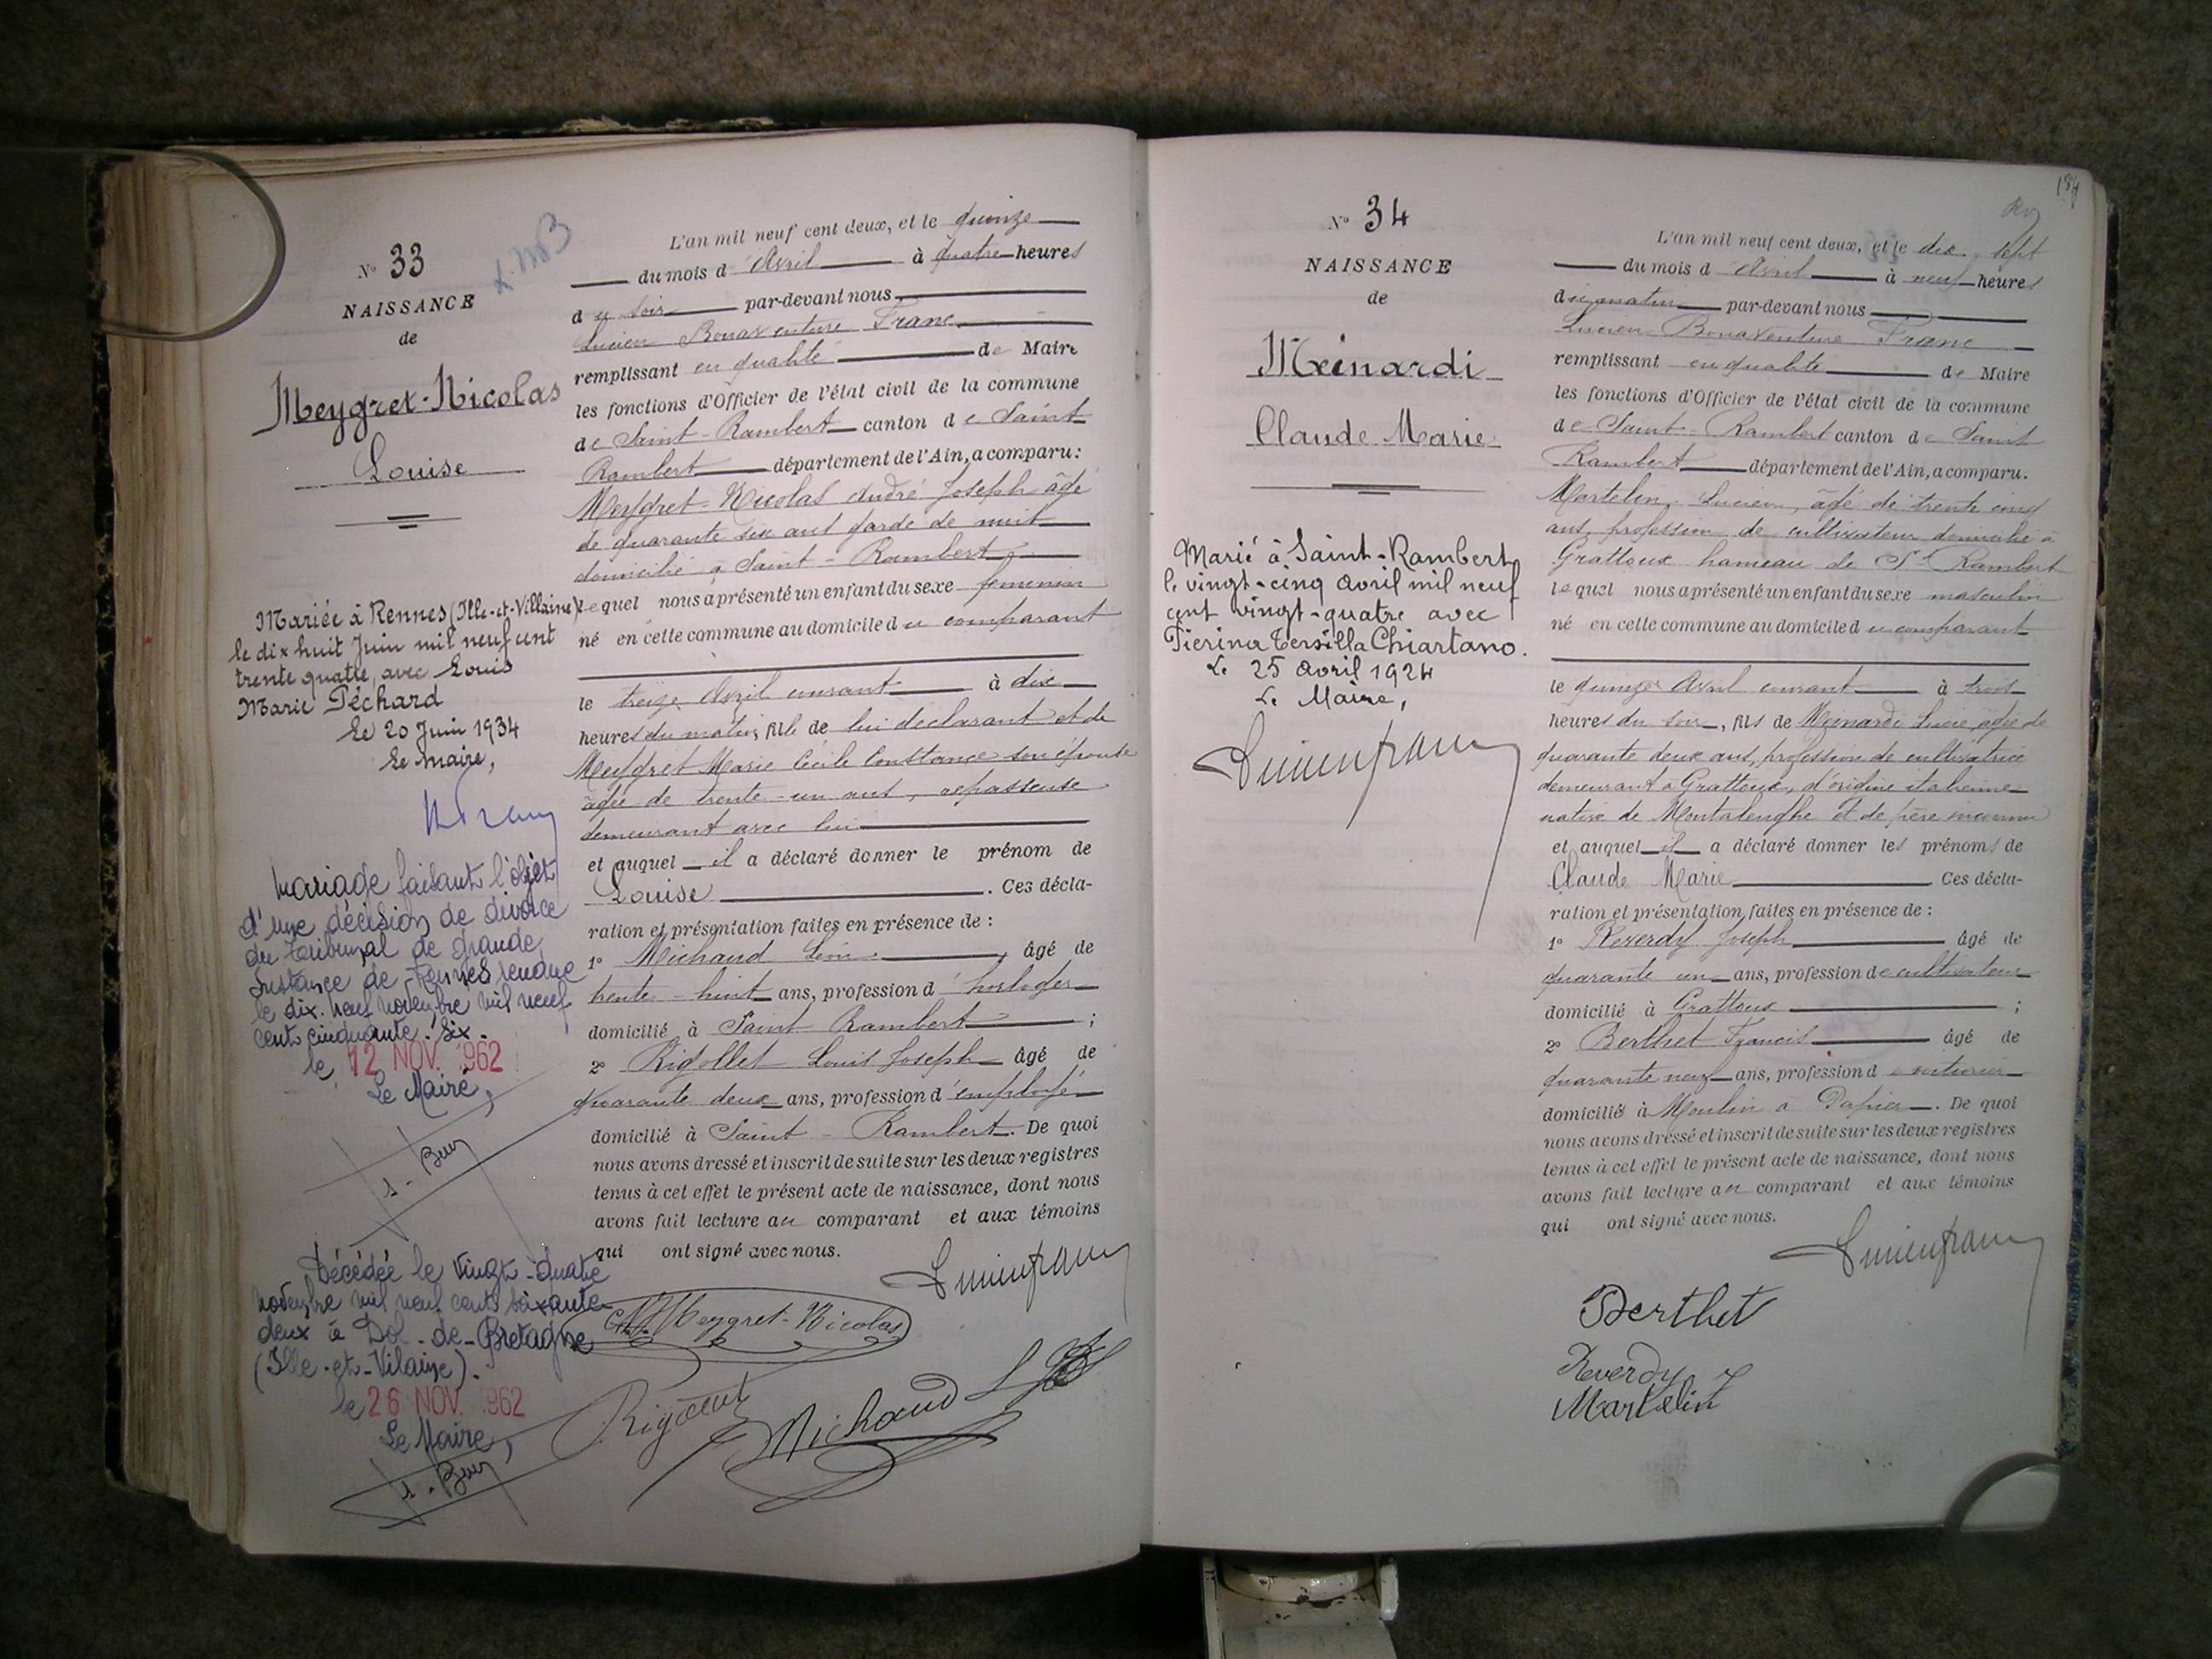 N° 33
NAISSANCE
de
Meygret-Nicolas
Louise
Mariée à Rennes (Ille-et-Villaine)
le dix huit Juin mil neuf cent
trente quatre, avec Louis
Marie Péchard
Le 20 Juin 1934
Le maire,
Mariage faisant l'objet
d'une décision de divorce
du tribunal de grande
instance de Rennes rendue
le dix-neuf novembre mil neuf
cent cinquante-six.
le 12 NOV. 1962
Le Maire,
Décédée le vingt-quatre
novembre mil neuf cent soixante
deux à Dol-de-Bretagne
(Ille-et-Vilaine).
le 26 NOV. 1962
Le Maire,
L'an mil neuf cent deux, et le quinze
du mois d'Avril à quatre heures
du soir par-devant nous
Lucien Bonaventure Franc
remplissant en qualité de Maire
les fonctions d'Officier de l'état civil de la commune
de Saint-Rambert canton de Saint
Rambert département de l'Ain, a comparu:
Meygret-Nicolas André Joseph âgé
de quarante six ans garde de nuit
domicilié à Saint-Rambert
lequel nous a présenté un enfant du sexe feminin
né en cette commune au domicile du comparant
le treize Avril courant à dix
heures du matin, fille de lui déclarant et de
Meygret Marie Cécile Constance son épouse
âgée de trente-un ans, repasseuse
demeurant avec lui
et auquel il a déclaré donner le prénom de
Louise. Ces décla-
ration et présentation faites en présence de :
1° Michaud, âgé de
trente-huit ans, profession d'horloger
domicilié à Saint Rambert ;
2° Rigollet Louis Joseph âgé de
quarante deux ans, profession d'employé
domicilié à Saint-Rambert. De quoi
nous avons dressé et inscrit de suite sur les deux registres
tenus à cet effet le présent acte de naissance, dont nous
avons fait lecture au comparant et aux témoins
qui ont signé avec nous.
Lucien franc
Meygret-Nicolas
Michaud
N° 34
NAISSANCE
de
Meinardi
Claude Marie
Marié à Saint-Rambert
le vingt-cinq Avril mil neuf
cent vingt-quatre avec
Pierina Tersilla Chiartano.
Le 25 Avril 1924
Le Maire,
Lucien franc
L'an mil neuf cent deux, et le dix sept
du mois d'Avril à neuf heures
du matin par-devant nous
Lucien Bonaventure Franc
remplissant en qualité de Maire
les fonctions d'Officier de l'état civil de la commune
de Saint-Rambert canton de Saint
Rambert département de l'Ain, a comparu.
Martelin Lucien, âgé de trente cinq
ans, profession de cultivateur domicilié à
Grattoux hameau de St Rambert
lequel nous a présenté un enfant du sexe masculin
né en cette commune au domicile du comparant
le quinze Avril courant à trois
heures du soir, fils de Meinardi Lucie, âgée de
quarante deux ans, profession de cultivatrice
demeurant à Grattoux, d'origine italienne
native de Montalenghe et de père inconnu
et auquel il a déclaré donner les prénoms de
Claude Marie Ces décla-
ration et présentation faites en présence de :
1° Reverdy Joseph âgé de
quarante un ans, profession de cultivateur
domicilié à Grattoux ;
2° Berthet Francis âgé de
quarante neuf ans, profession de voiturier
domicilié à Moulin à Papier. De quoi
nous avons dressé et inscrit de suite sur les deux registres
tenus à cet effet le présent acte de naissance, dont nous
avons fait lecture au comparant et aux témoins
qui ont signé avec nous.
Lucien franc
Berthet
Reverdy J
Martelin